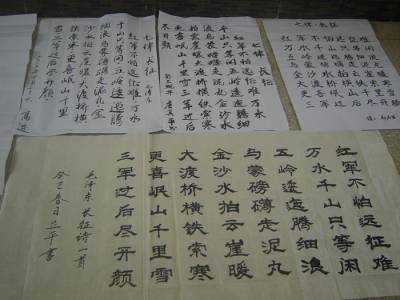 七律·长征
红军不怕远征难
万水千山只等闲
五岭逶迤腾细浪
乌蒙磅礴走泥丸
金沙水拍云崖暖
大渡桥横铁索寒
更喜岷山千里雪
三军过后尽开颜
七律 长征
红军不怕远征难万水
千山只等闲五岭逶迤腾细
浪乌蒙磅礴走泥丸金沙水
拍云崖暖大渡桥横铁索寒
更喜岷山千里雪三军过后
尽开颜
七律长征
红军不怕远征难万水
千山只等闲五岭逶迤腾
细浪乌蒙磅礴走泥丸金
沙水拍云崖暖大渡桥横
铁索寒更喜岷山千里
雪三军过后尽开颜
红军不怕远征难
万水千山只等闲
五岭逶迤腾细浪
乌蒙磅礴走泥丸
金沙水拍云崖暖
大渡桥横铁索寒
更喜岷山千里雪
三军过后尽开颜
毛泽东长征诗一首
癸巳春日立平书